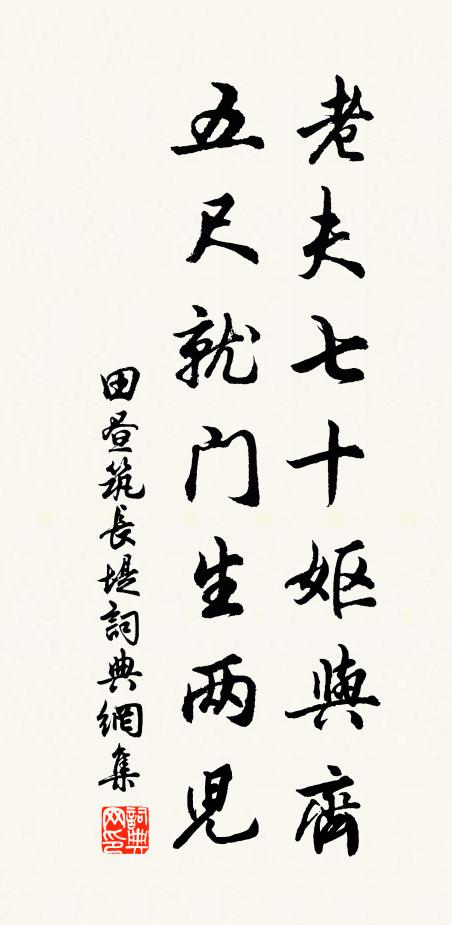 老夫七十妪與齊
五尺就门生两兒
田昼筑長堤詞典網集
詞典网印